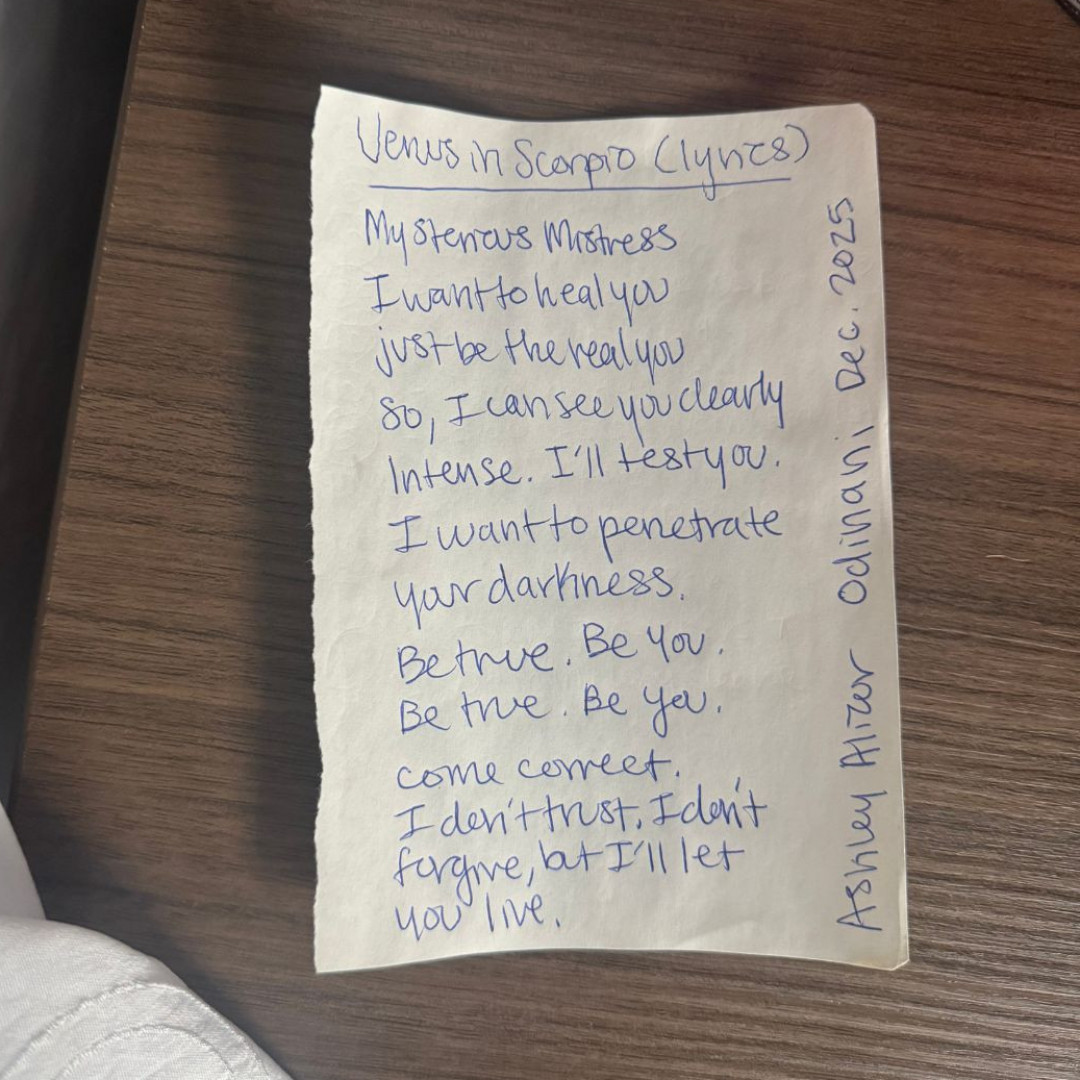 Venus in Scorpio (lyrics)
Mysterious Mistress
I want to heal you
just be the real you
so, I can see you clearly
Intense. I'll test you.
I want to penetrate
your darkness.
Be true. Be You.
Be true. Be You.
come correct.
I don't trust. I don't
forgive, but I'll let
you live.
Ashley Alizor Odinani, Dec. 2025